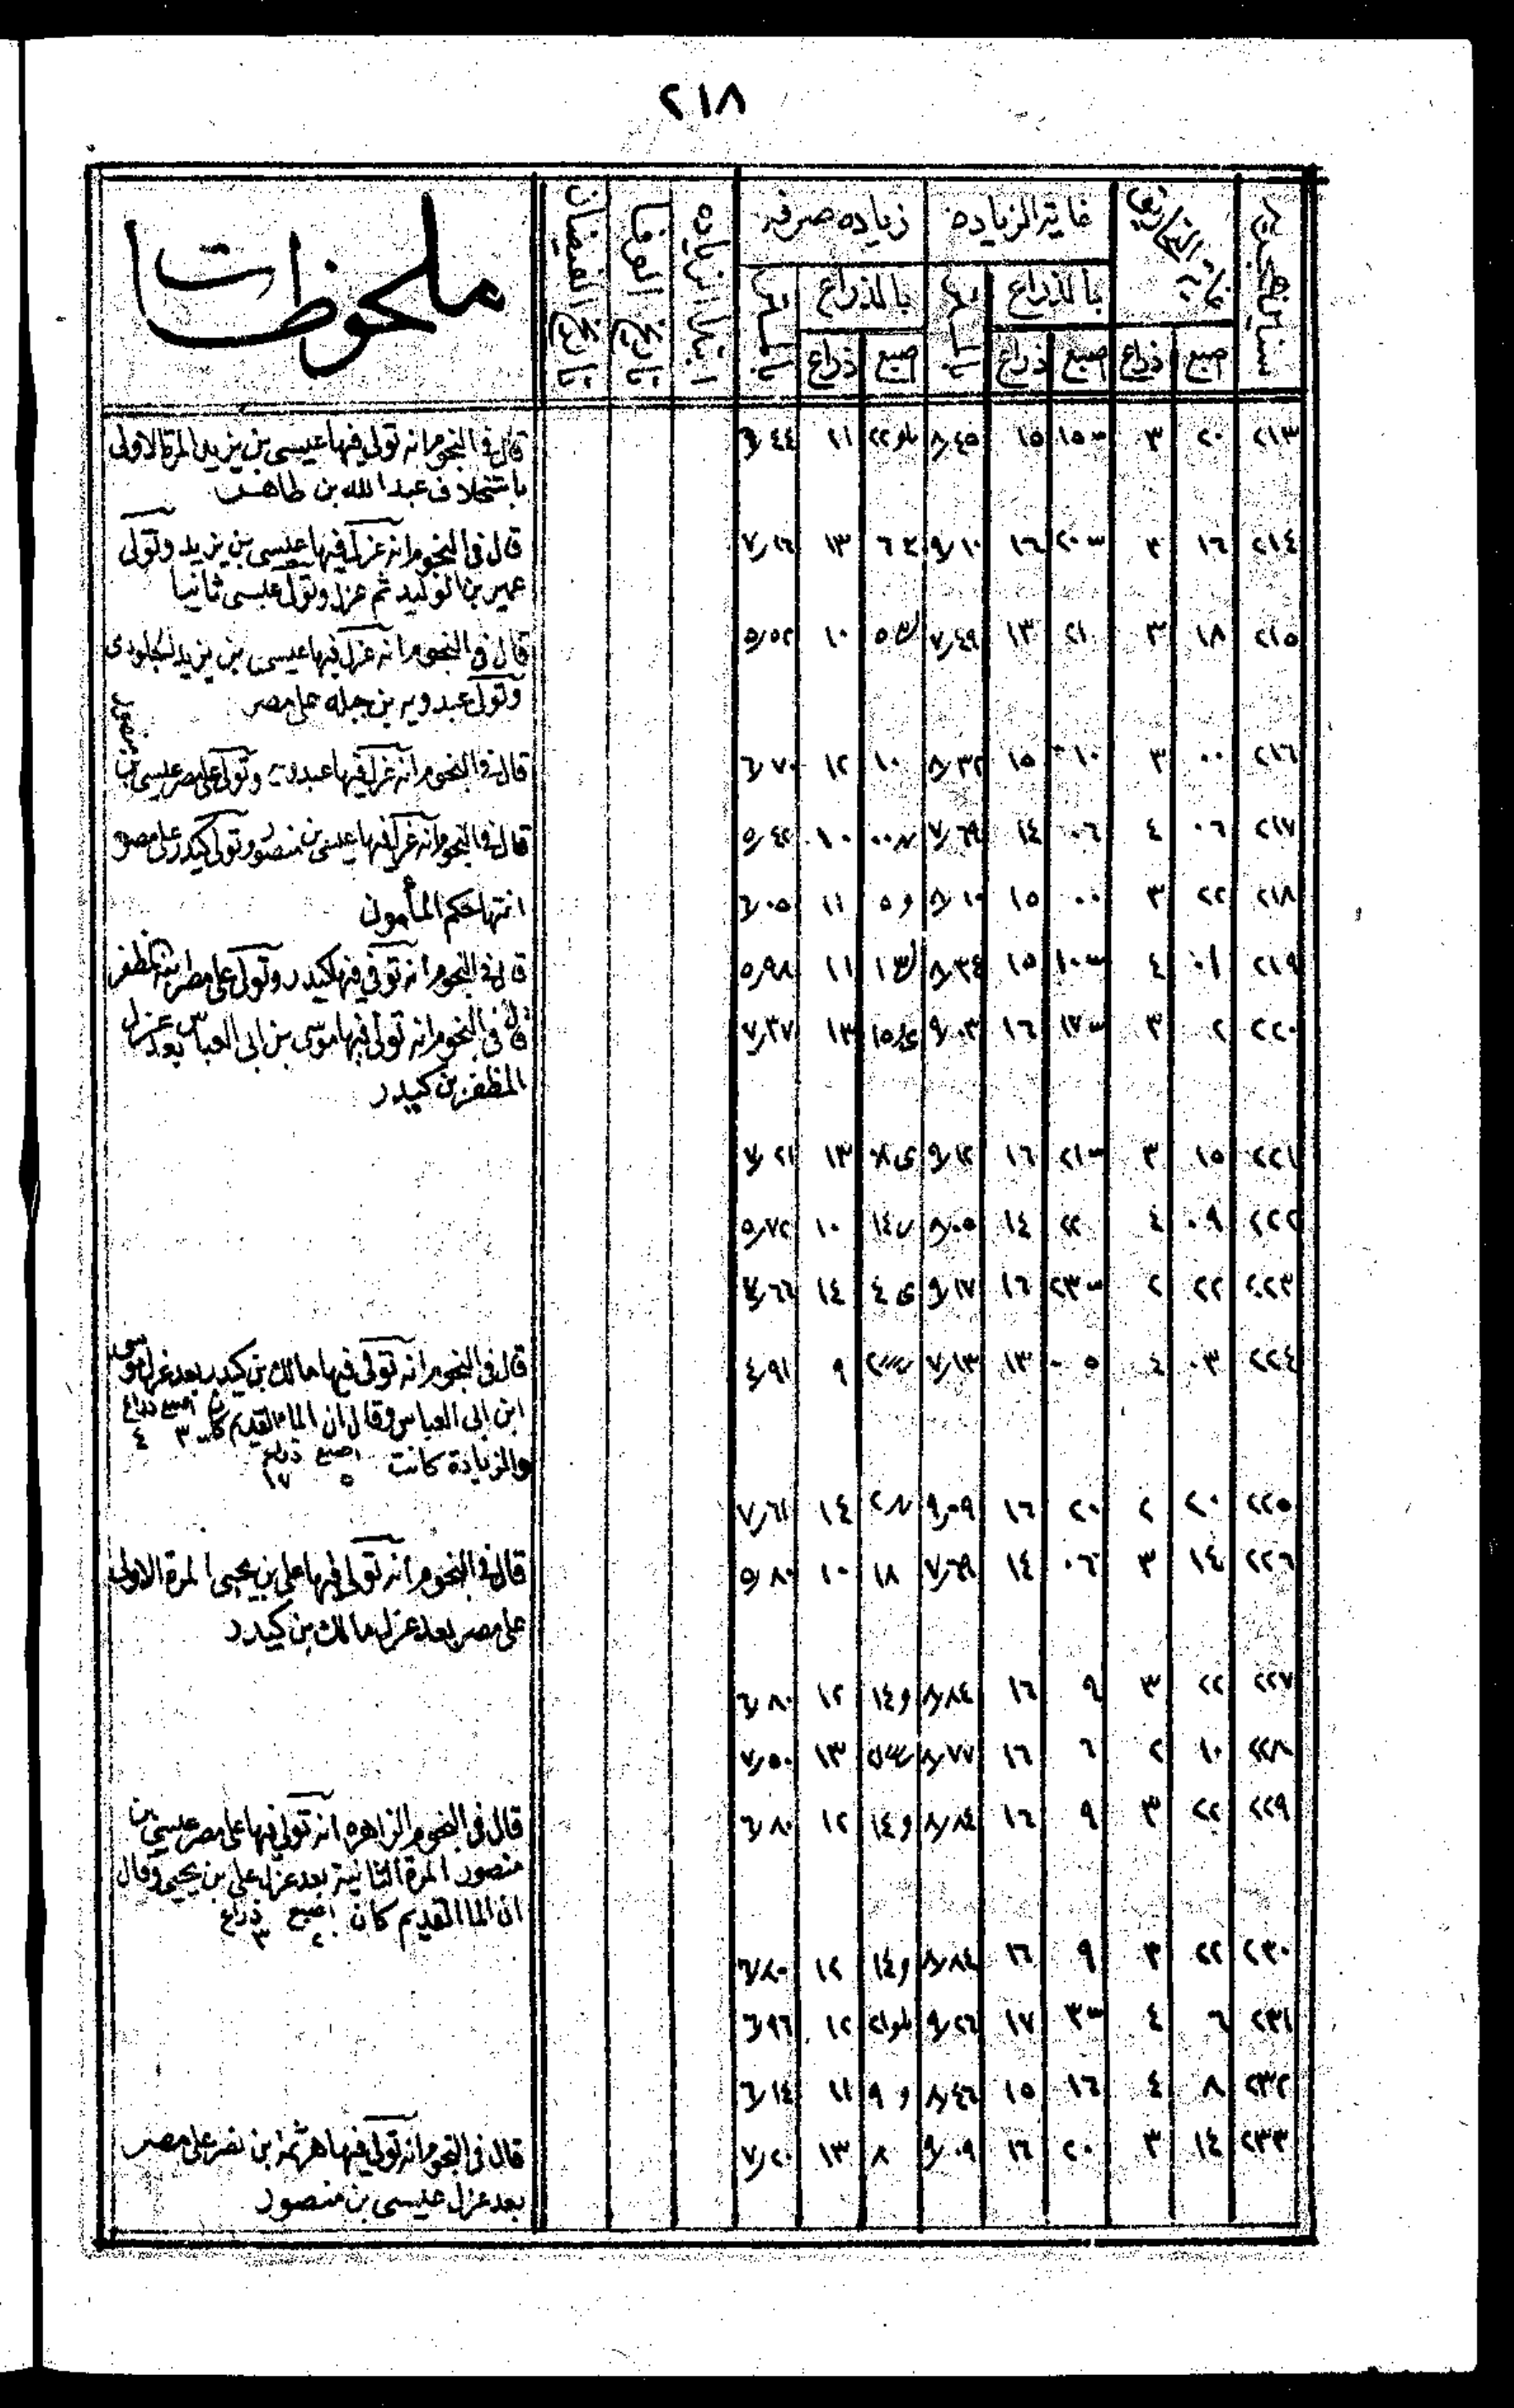 ٢١٨
سنين هجرية
نهاية التحاريق
غاية الزياده
زياده صرفه
ابتدا الزياده
تاريخ الوفا
تاريخ الفيضان
ملحوظات
بالذراع
بالذراع
صبع ذراع صبع ذراع صبع ذراع
٢١٣ ٢٠ ٣ ١٥ ١٥ ٨٫٤٥ ٢٢ ١١ ٦٫٤٤
قال فى النجوم انه تولى فيها عيسى بن يزيد المرة الاولى
باستخلاف عبد الله بن طاهر
٢١٤ ١٦ ٣ ٢٠ ١٦ ٩٫١٠ ١٣ ٧٫١٦
قال فى النجوم انه عزل فيها عيسى بن يزيد وتولى
عمير بن الوليد ثم عزل وتولى عيسى ثانيا
٢١٥ ١٨ ٣ ٢١ ١٣ ٧٫٤٩ ١٠ ٥٫٥٢
قال فى النجوم انه عزل فيها عيسى بن يزيد الجلودى
وتولى عبدويه بن جبله على مصر
٢١٦ ٠٠ ٣ ١٠ ١٥ ٨٫٣٢ ١٠ ١٢ ٦٫٧٠
قال فى النجوم انه عزل فيها عبدويه وتولى على مصر عيسى بن منصور
٢١٧ ٠٦ ٤ ٠٦ ١٤ ٧٫٦٩ ٠٠ ١٠ ٥٫٤٢
قال فى النجوم انه عزل فيها عيسى بن منصور وتولى كيدر على مصر
٢١٨ ٢٢ ٣ ٠٠ ١٥ ٨٫١٠ و ٥ ١١ ٦٫٠٥
انتها حكم المأمون
٢١٩ ٠١ ٤ ١٠ ١٥ ٨٫٣٤ ١١ ٥٫٩٨
قال فى النجوم انه توفى فيها كيدر وتولى على مصر ابنه المظفر
٢٢٠ ٢ ٣ ١٧ ١٦ ٩٫٠٣ ١٥ ١٣ ٧٫٣٧
قال فى النجوم انه تولى فيها موسى بن ابى العباس بعد عزل
المظفر بن كيدر
٢٢١ ١٥ ٣ ٢١ ١٦ ٩٫١٢ ى ٨ ١٣ ٧٫٢١
٢٢٢ ٠٩ ٤ ٢٢ ١٤ ٨٫٠٥ ١٤ ١٠ ٥٫٧٢
٢٢٣ ٢٢ ٢ ٢٣ ١٦ ٩٫١٧ ى ٤ ١٤ ٧٫٦٦
٢٢٤ ٠٣ ٤ ٠٥ ١٣ ٧٫١٣ ٩ ٤٫٩١
قال فى النجوم انه تولى فيها مالك بن كيدر بعد عزل موسى
ابن ابى العباس وقال ان الما القديم كان اصبع ٣ ذراع ٤
والزيادة كانت اصبع ٥ ذراع ١٧
٢٢٥ ٢٠ ٢ ٢٠ ١٦ ٩٫٠٩ ١٤ ٧٫٦١
٢٢٦ ١٤ ٣ ٠٦ ١٤ ٧٫٦٩ ١٨ ١٠ ٥٫٨٠
قال فى النجوم انه تولى فيها على بن يحيى المرة الاولى
على مصر بعد عزل مالك بن كيدر
٢٢٧ ٢٢ ٣ ٩ ١٦ ٨٫٨٤ و ١٤ ١٢ ٦٫٨٠
٢٢٨ ١٠ ٢ ٦ ١٦ ٨٫٧٧ ١٣ ٧٫٥٠
٢٢٩ ٢٢ ٣ ٩ ١٦ ٨٫٨٤ و ١٤ ١٢ ٦٫٨٠
قال فى النجوم الزاهره انه تولى فيها على مصر عيسى بن
منصور المرة الثانية بعد عزل على بن يحيى وقال
ان الما القديم كان اصبع ٢ ذراع ٣
٢٣٠ ٢٢ ٣ ٩ ١٦ ٨٫٨٤ و ١٤ ١٢ ٦٫٨٠
٢٣١ ٦ ٤ ٣ ١٧ ٩٫٢٦ ٢١ ١٢ ٦٫٩٦
٢٣٢ ٨ ٤ ١٦ ١٥ ٨٫٤٦ و ٩ ١١ ٦٫١٤
٢٣٣ ١٤ ٣ ٢٠ ١٦ ٩٫٠٩ ٨ ١٣ ٧٫٢٠
قال فى النجوم انه تولى فيها هرثمة ابن نصر على مصر
بعد عزل عيسى بن منصور